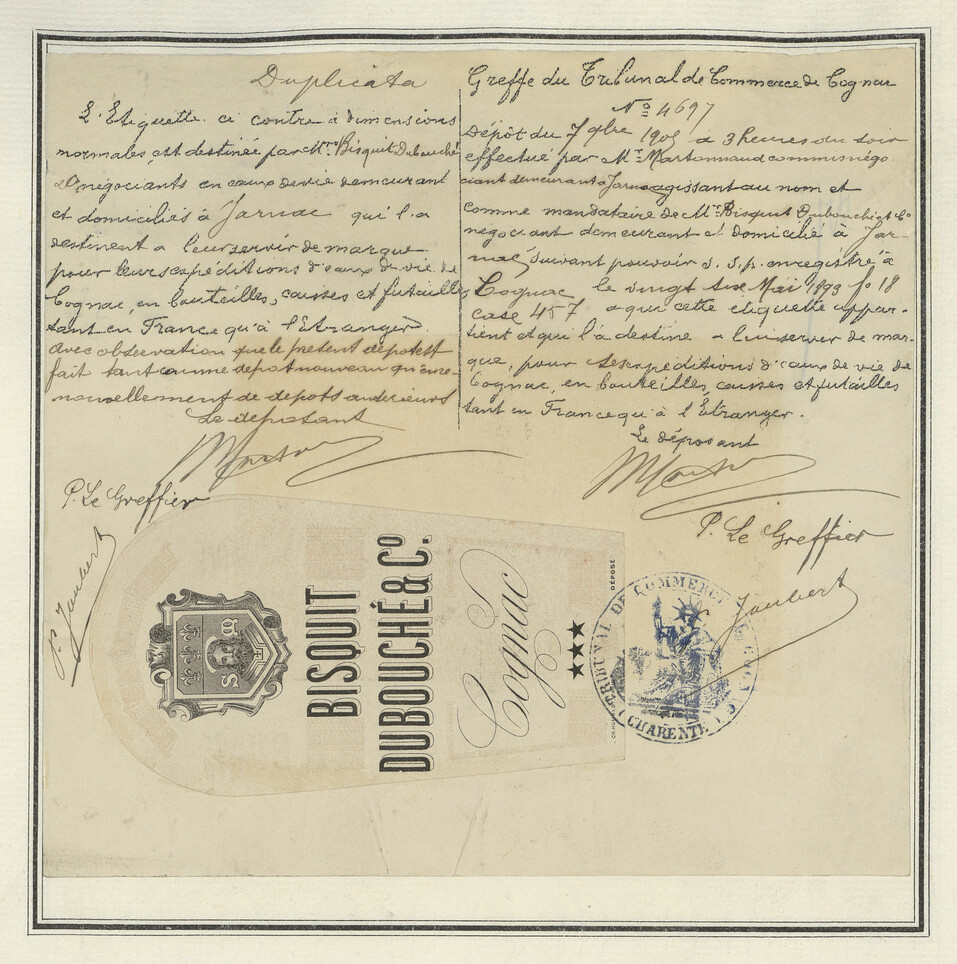 Duplicata
L'Etiquette ci contre à dimensions
normales, est destinée par Mrs Bisquit Dubouché
& Co négociants en eaux de vie demeurant
et domiciliés à Jarnac qui l'a
destinent a leur servir de marque
pour leurs expéditions d'eaux de vie de
Cognac, en bouteilles, caisses et futailles
tant en France qu'à l'Etranger.
avec observation que le présent dépot est
fait tant comme depot nouveau qu'en re-
nouvellement de depots anterieurs
Le deposant
P. Le Greffier
P. Jaubert
Greffe du Tribunal de Commerce de Cognac
No 4697
Dépôt du 7 9bre 1905 a 3 heures du soir
effectué par Mr Martonnaud commis négo
ciant demeurant à Jarnac agissant au nom et
comme mandataire de Mrs Bisquit Dubouché et Co
negociant demeurant et domicilié à Jar-
nac, suivant pouvoir s. s. p. enregistré à
Cognac le vingt six Mai 1893 fo 18
case 457 a que cette etiquette appar-
tient et qui l'a destine a lui server de mar-
que, pour ses expéditions d'eaux de vie de
Cognac, en bouteilles, caisses et futailles
tant en France qu'à l'Étranger.
Le déposant
P. Le Greffier
Jaubert
BISQUIT
DUBOUCHÉ & Co.
Cognac
DÉPOSÉ
TRIBUNAL DE COMMERCE DE COGNAC
(CHARENTE)